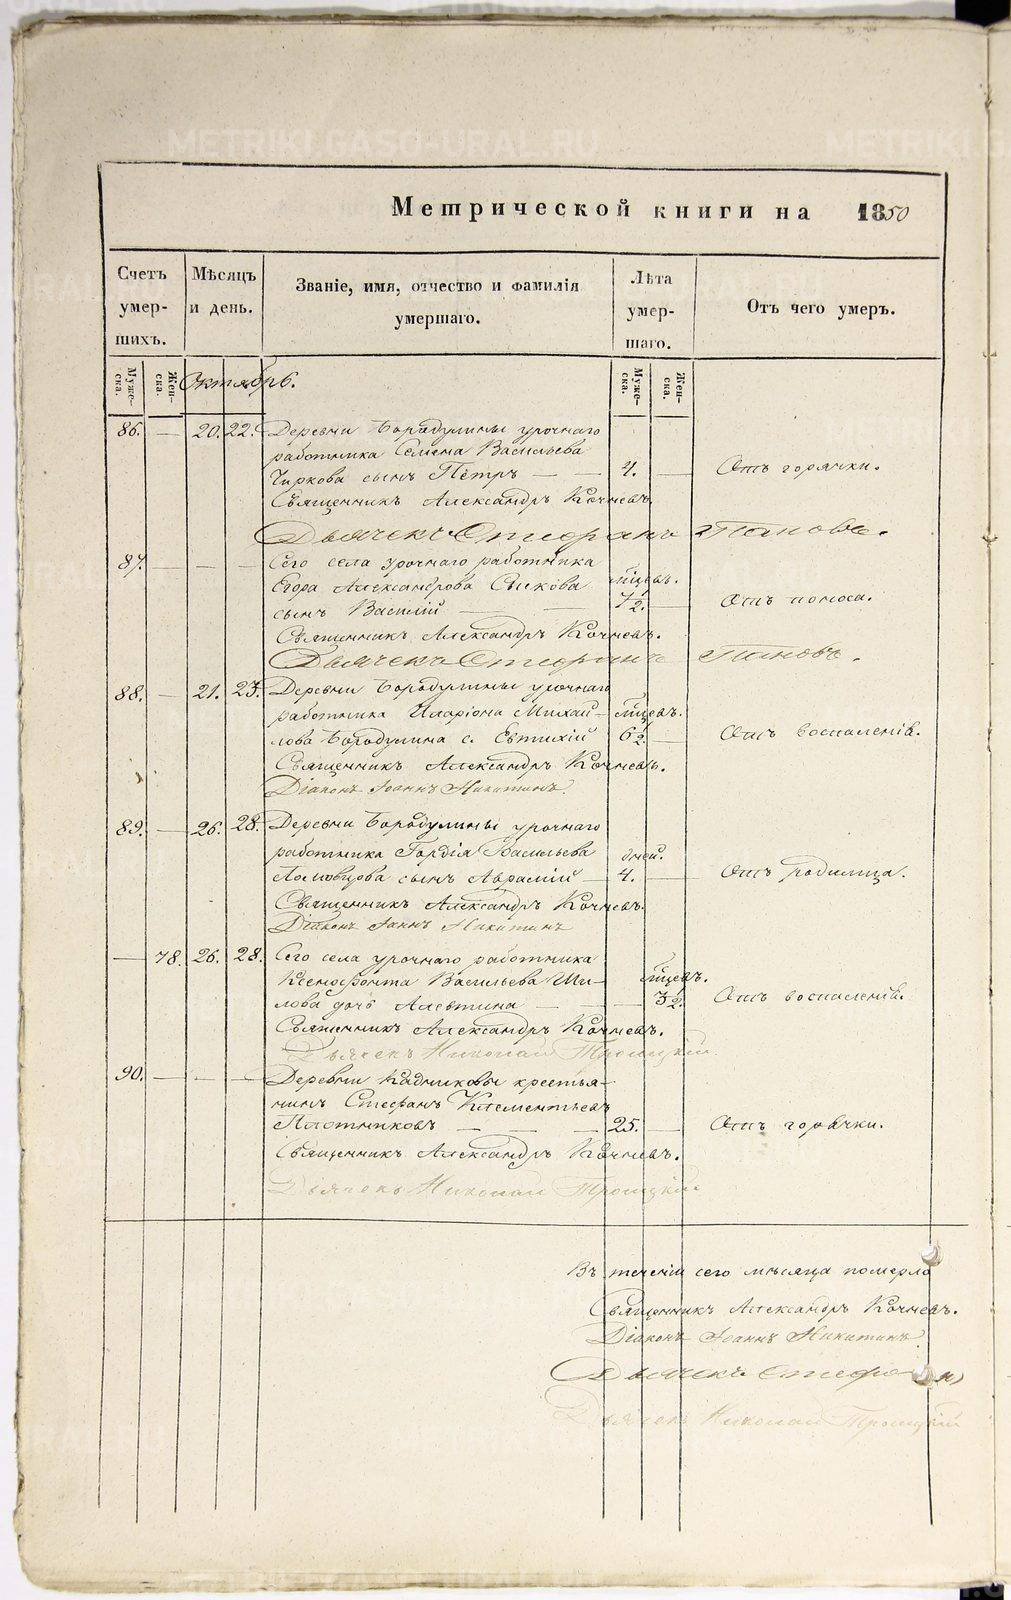 METRIKI.GASO-URAL.RU
Метрической книги на 1850
Счетъ умер-шихъ.
Мѣсяцъ и день.
Званіе, имя, отчество и фамилія умершаго.
Лѣта умер-шаго.
Отъ чего умеръ.
Муже-ска.
Жен-ска.
Муже-ска.
Жен-ска.
Октябрь.
86. — 20. 22. Деревни Бородулины урочнаго
работника Семена Васильева
Чиркова сынъ Петръ — — 4. — Отъ горячки.
Священникъ Александръ Кочневъ.
Дьячекъ Стефанъ Пановъ.
87. — — — Сего села урочнаго работника
Егора Александрова мѣцевъ.
сынъ Василій — — 7 1/2. — Отъ поноса.
Священникъ Александръ Кочневъ.
Дьячекъ Стефанъ Пановъ.
88. — 21. 23. Деревни Бородулины урочнаго
работника Иларіона Михай- мѣцевъ.
лова Бородулина с. Евтихій 6 1/2. — Отъ воспаленія.
Священникъ Александръ Кочневъ.
Діаконъ Іоаннъ Никитинъ.
89. — 26. 28. Деревни Бородулины урочнаго
работника Гордія Васильева дней.
сынъ Аврамій — 4. — Отъ родимца.
Священникъ Александръ Кочневъ.
Діаконъ Іоаннъ Никитинъ
— 78. 26. 28. Сего села урочнаго работника
Ксенофонта Васильева Ши- мѣцевъ.
лова дочь Алевтина — — 3 1/2. Отъ воспаленія.
Священникъ Александръ Кочневъ.
Дьячекъ Николай Троицкій
90. — — — Деревни Кадниковы крестья-
нинъ Стефанъ Клементьевъ
Плотниковъ — — — 25. — Отъ горячки.
Священникъ Александръ Кочневъ.
Дьячекъ Николай Троицкій
Въ теченіи сего мѣсяца померло
Священникъ Александръ Кочневъ.
Діаконъ Іоаннъ Никитинъ
Дьячекъ Стефа
Дьячекъ Николай Троицкій